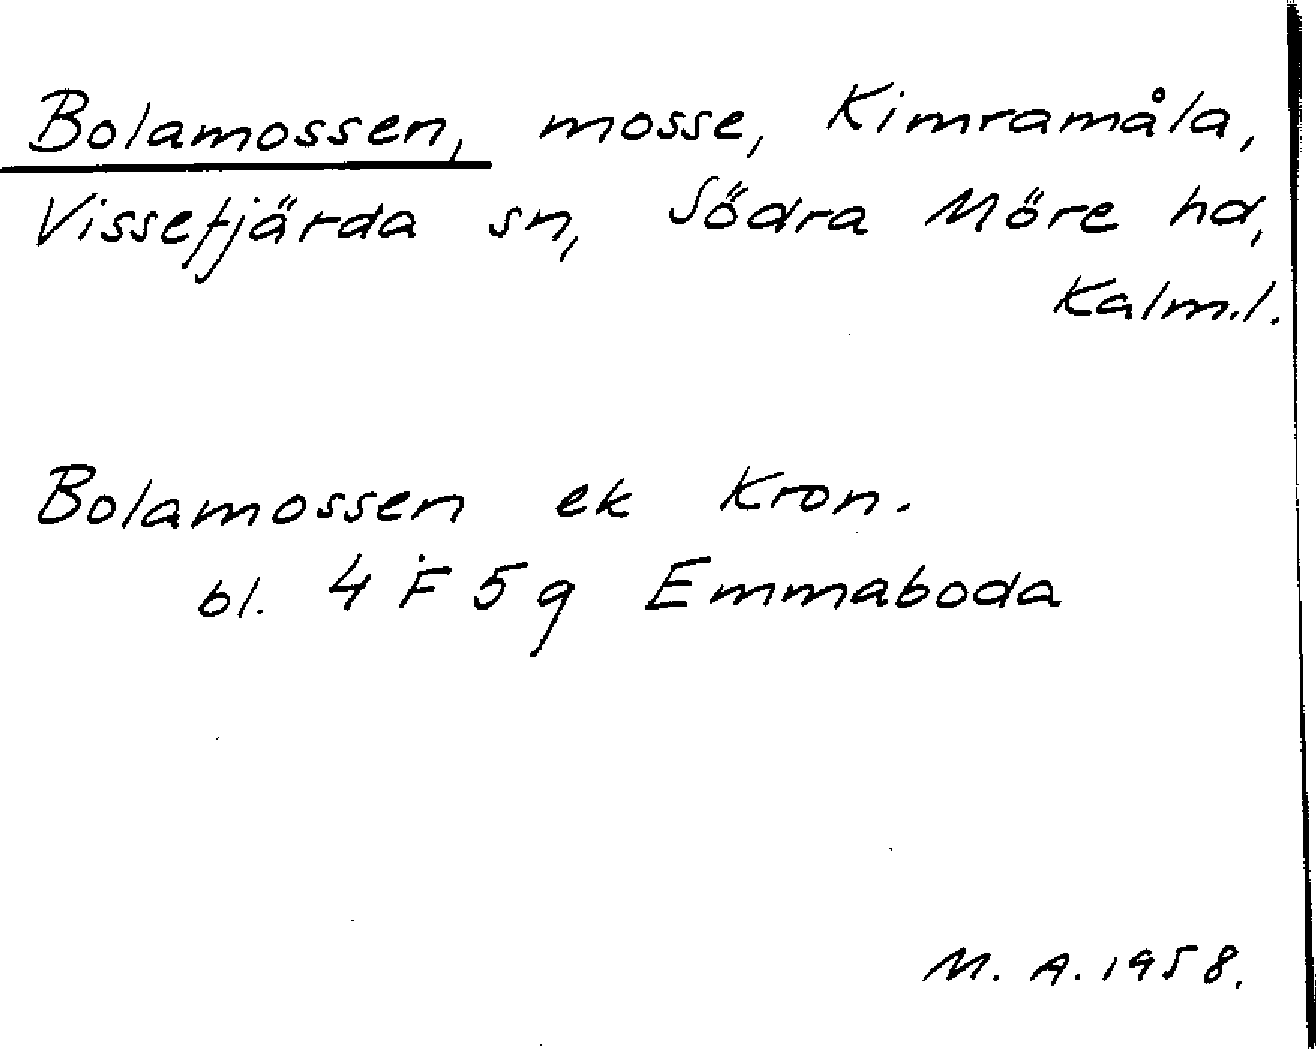 Bolamossen, mosse, Kimramåla,
Vissefjärda sn, Södra Möre hd,
Kalm.l.
Bolamossen ek Kron.
bl. 4 F 5 g Emmaboda
M. A. 1958.